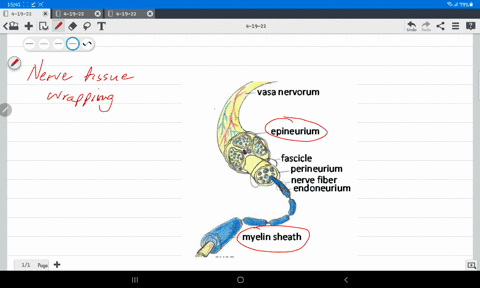 15:41
79%
4-19-22
4-19-22
4-19-22
4-19-22
Undo
Redo
Nerve tissue
wrapping
vasa nervorum
epineurium
fascicle
perineurium
nerve fiber
endoneurium
myelin sheath
1/1 Page